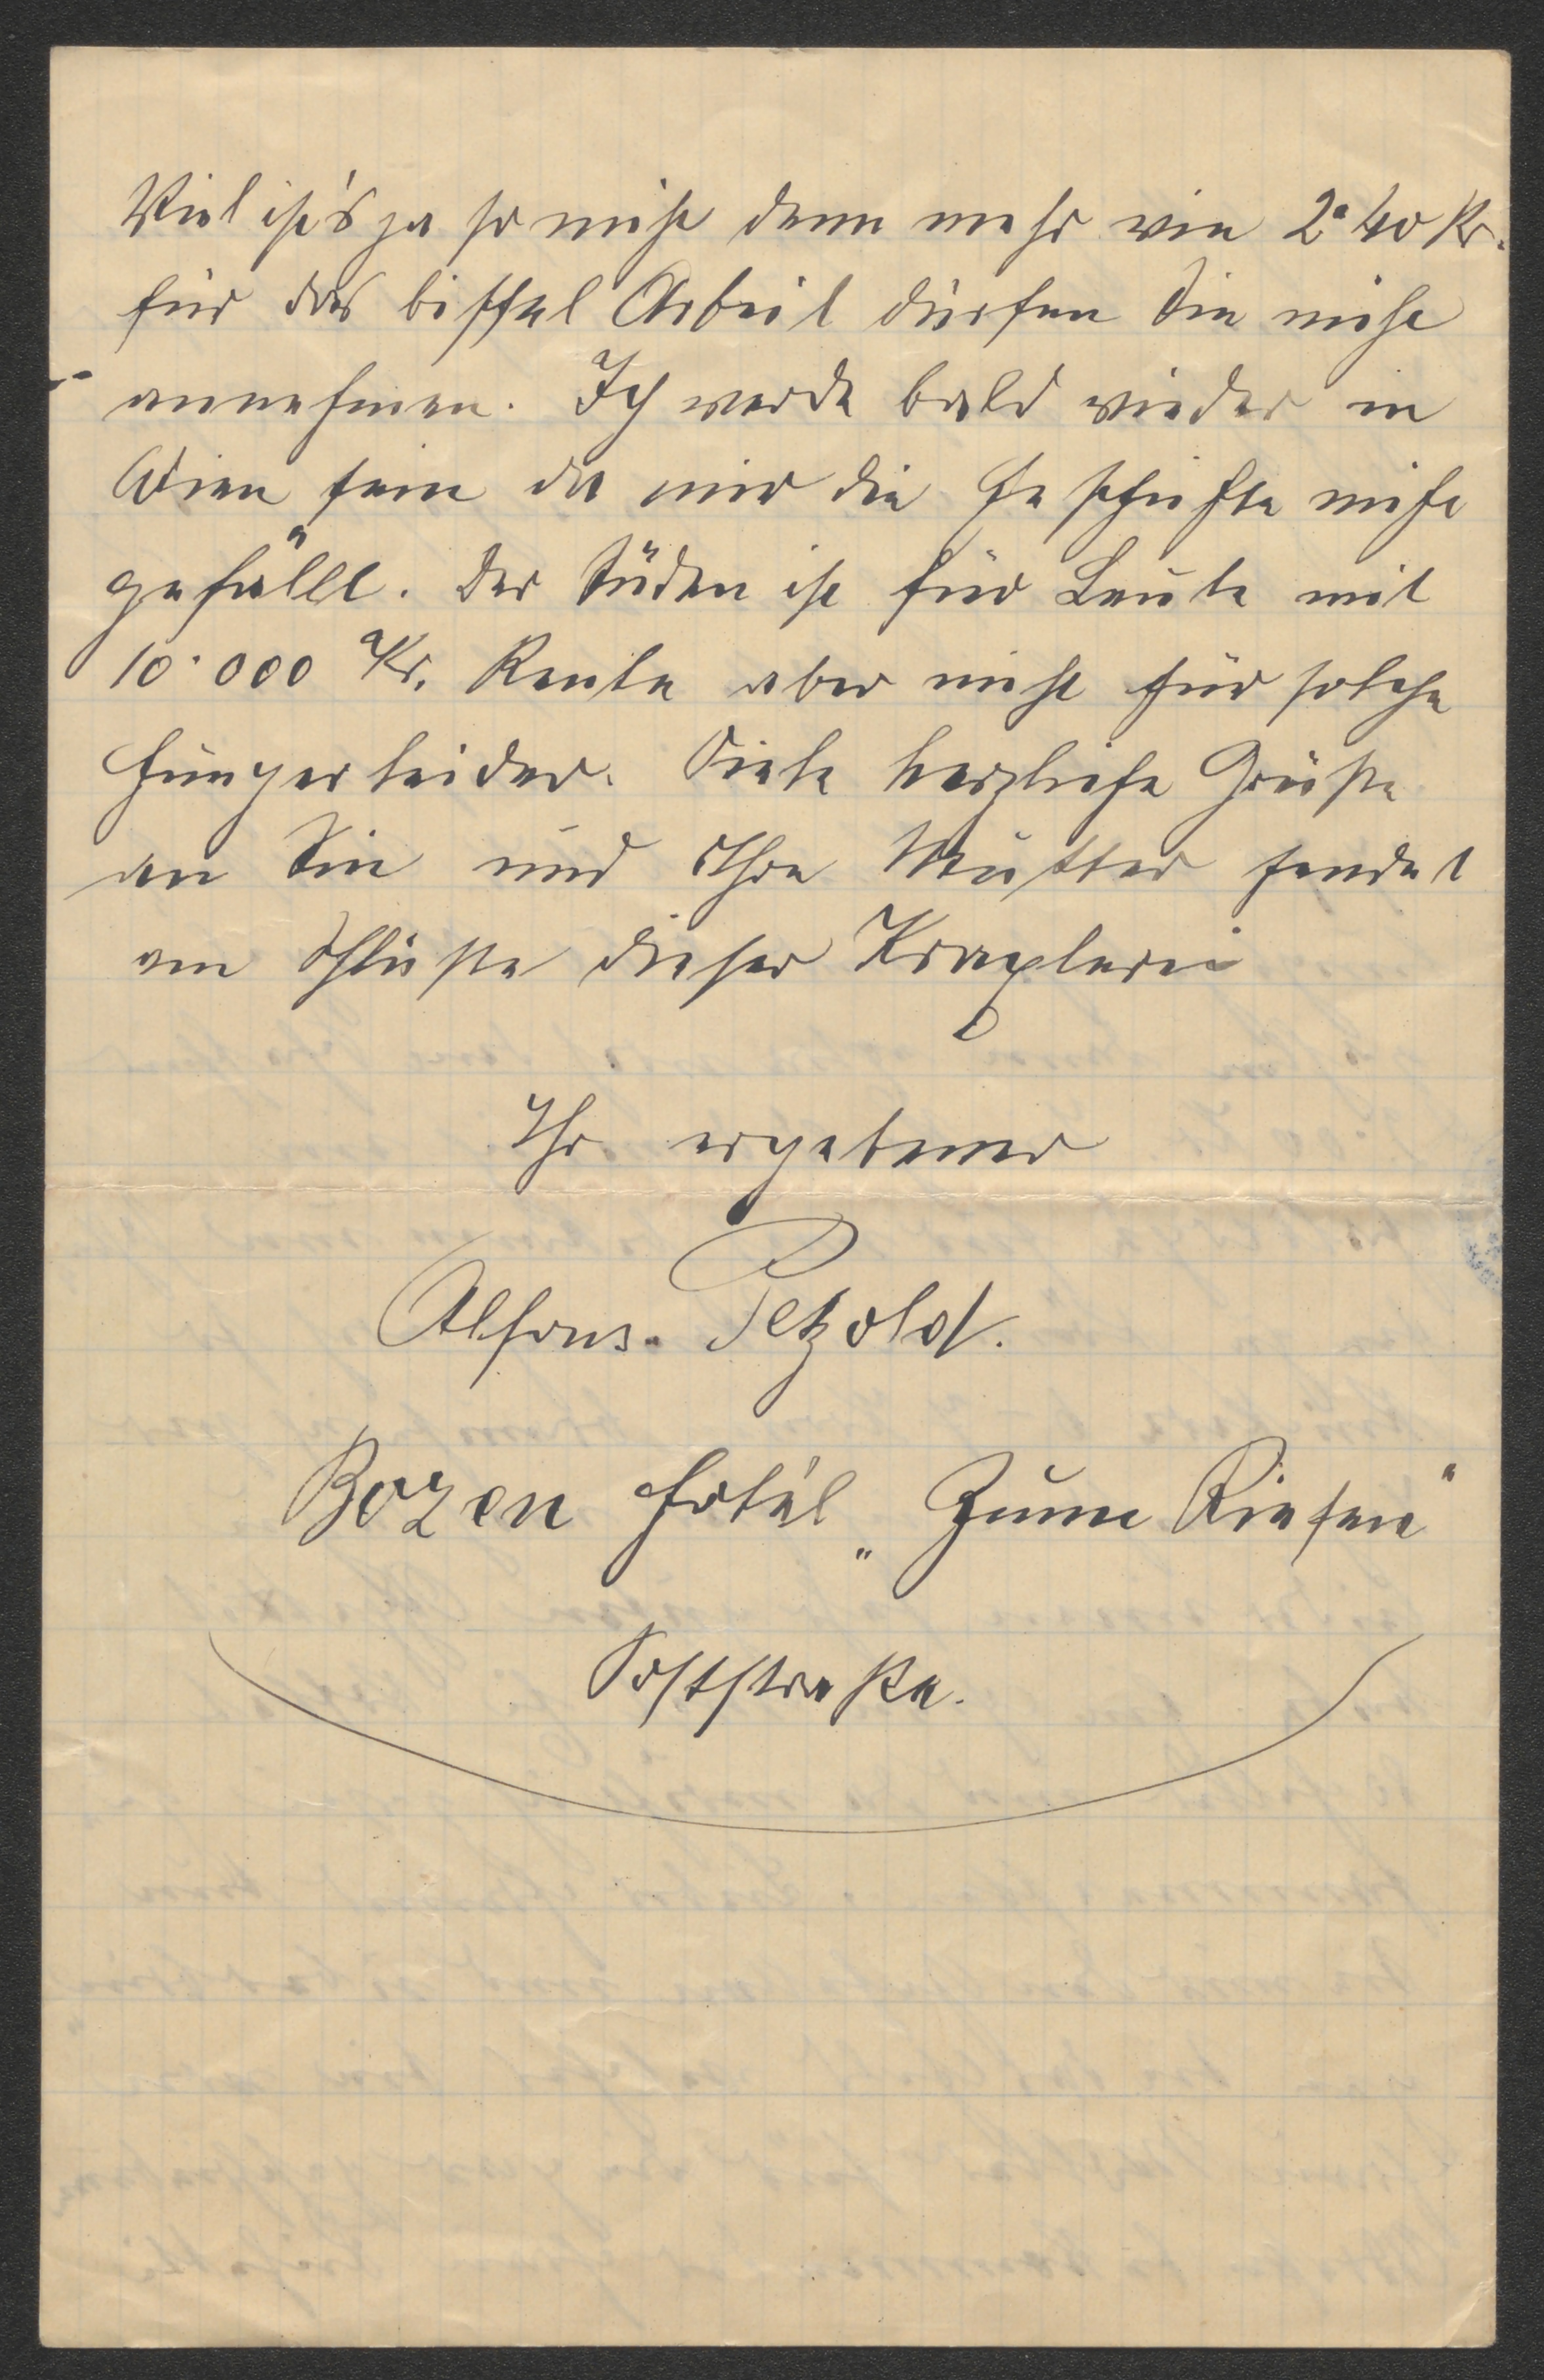 Viel ist's ja so nicht denn mehr wie 2·40 Kr.
für das bissel Arbeit dürfen Sie nicht
annehmen. Ich werde bald wieder in
Wien sein da mir die Geschichte nicht
gefällt. Der Süden ist für Leute mit
10·000 Kr. Rente aber nicht für solche
Hungerleider. Viele herzliche Grüße
an Sie und Ihre Mutter sendet
am Schluße dieser Kraxlerei
Ihr ergebener
Alfons Petzold.
Bozen Hotél „Zum Riesen"
Poststraße.